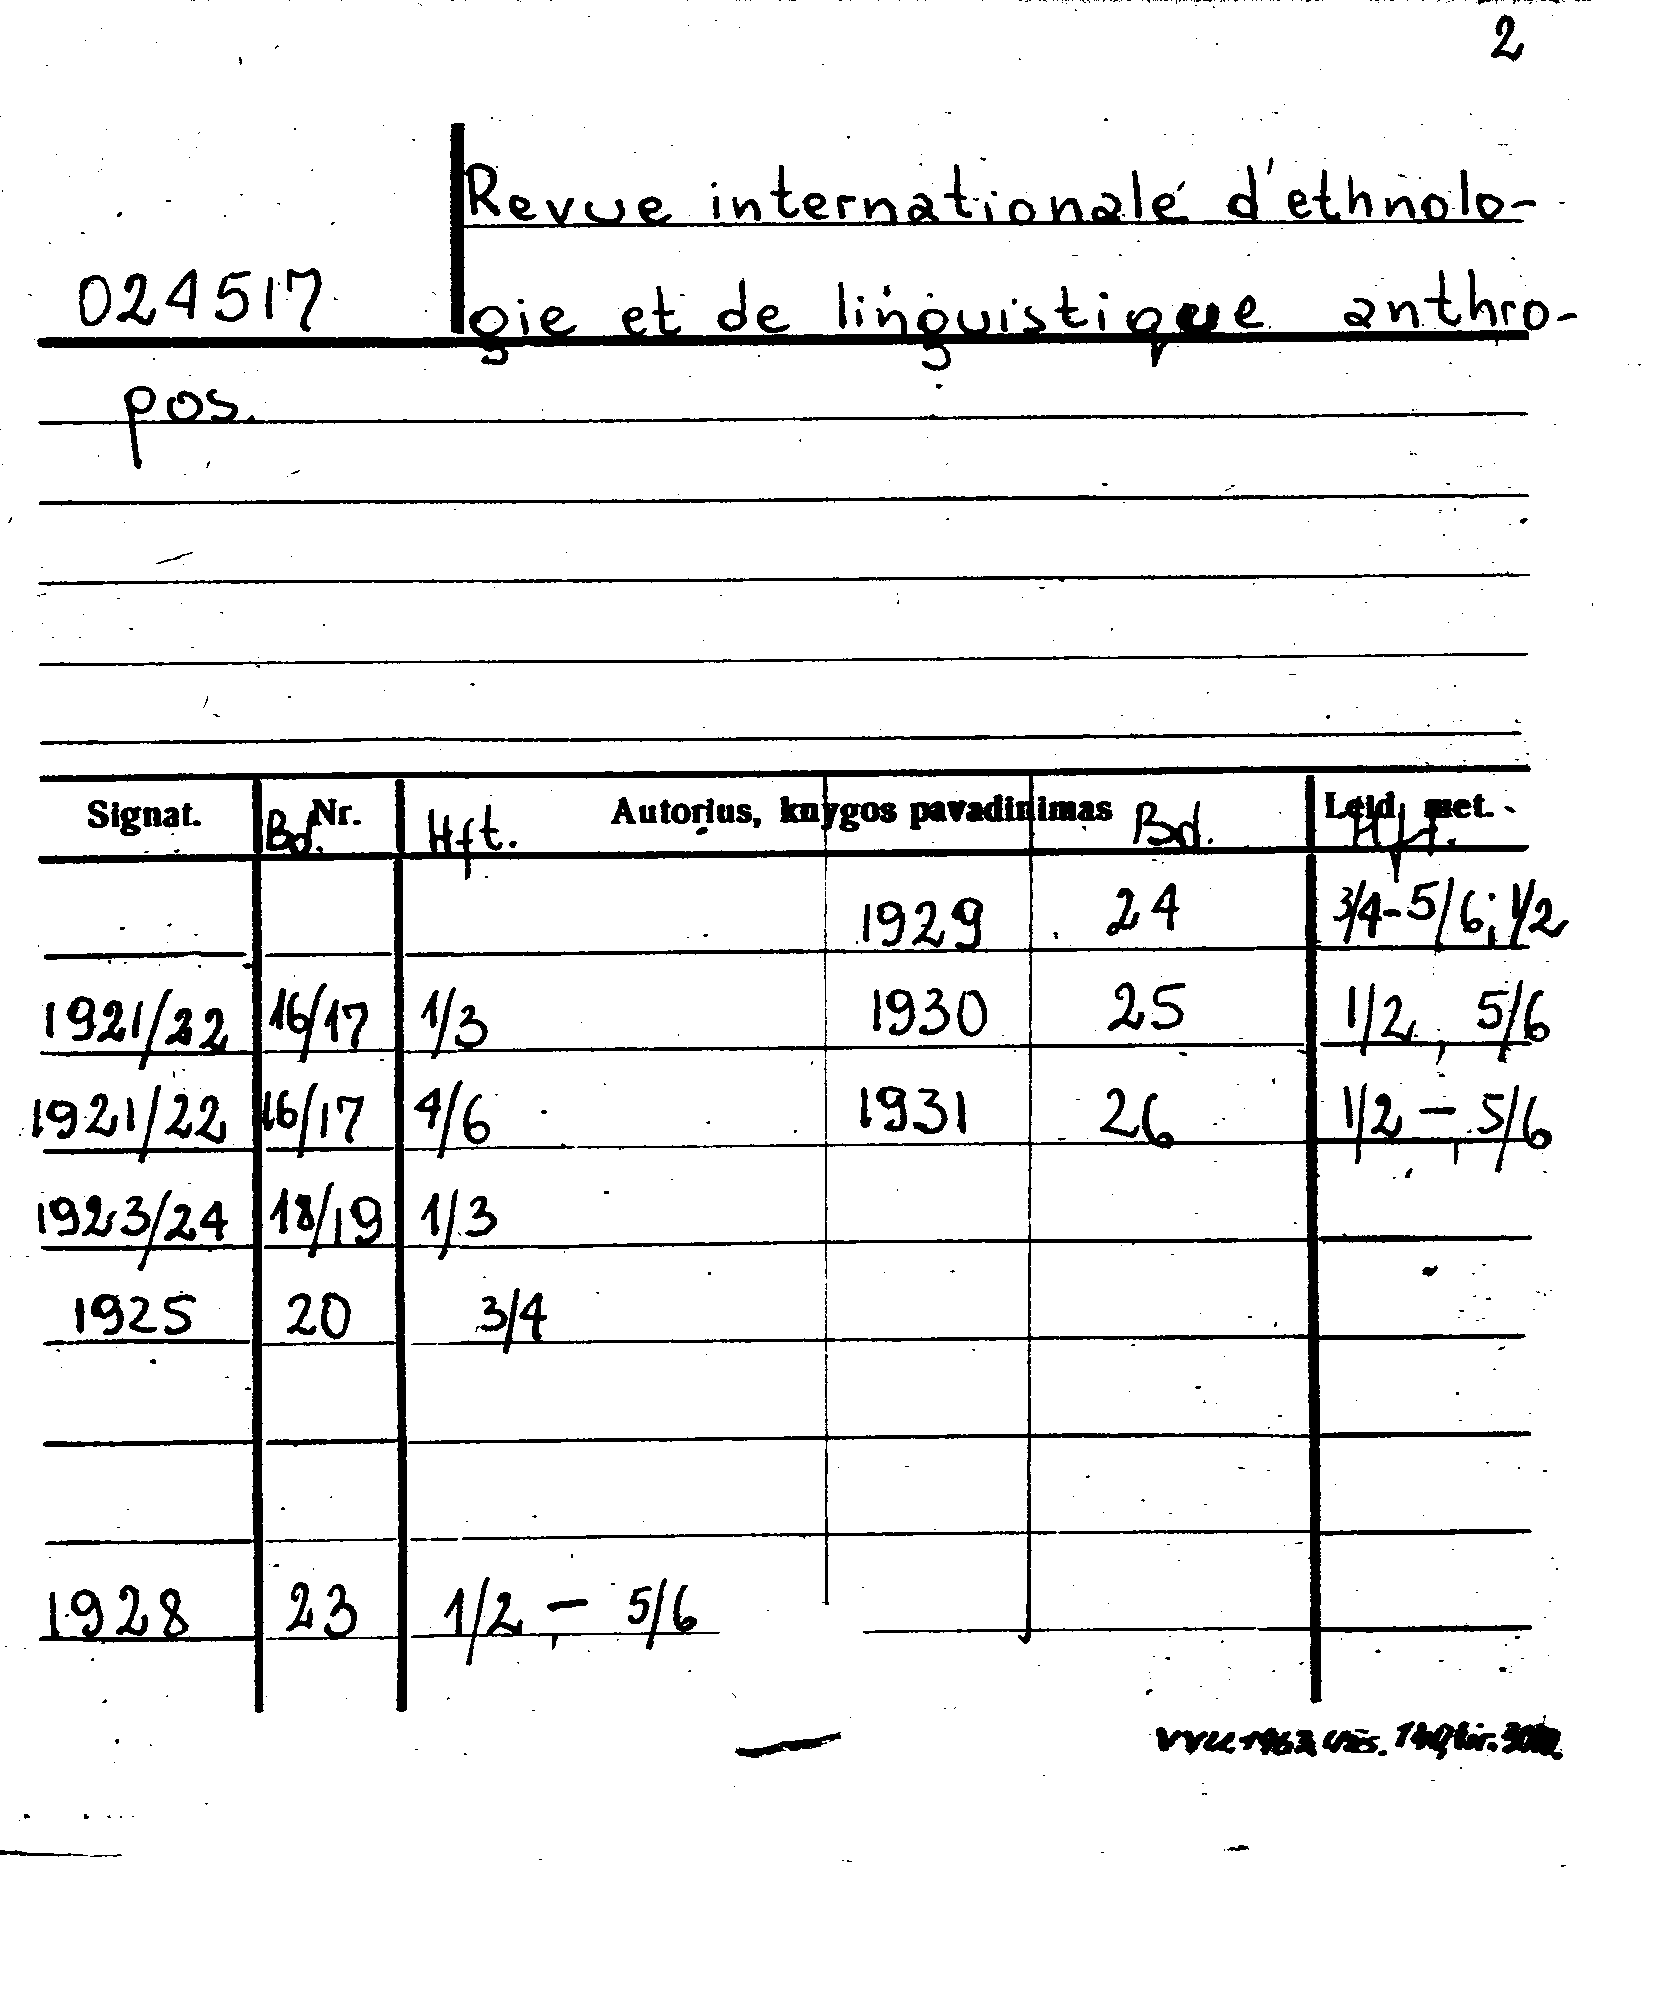 2
Revue internationalé d'ethnolo-
024517 gie et de linguistique anthro-
pos.
Signat. Bd. Nr. Hft. Autorius, knygos pavadinimas Bd. Leid. met. Hft.
1929 24 3/4-5/6; 1/2
1921/22 16/17 1/3 1930 25 1/2, 5/6
1921/22 16/17 4/6 1931 26 1/2 - 5/6
1923/24 18/19 1/3
1925 20 3/4
1928 23 1/2 - 5/6